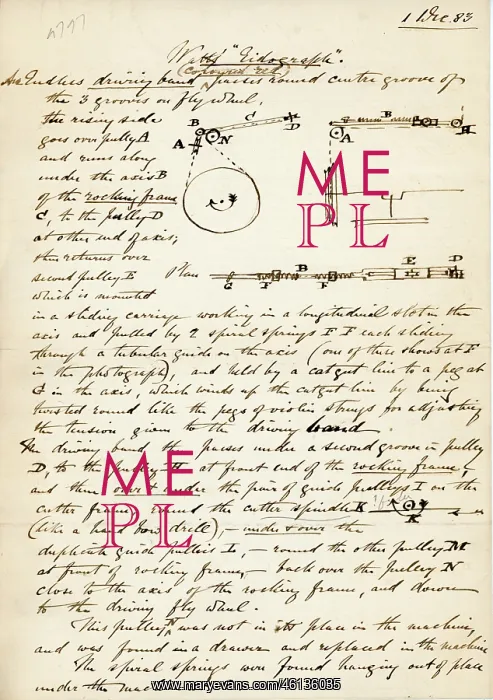 4797
1 Dec. 83
Watt's "Eidograph".
An Endless driving band passes round centre groove of
the 3 grooves on fly wheel,
the rising side
goes over pulley A
and runs along
under the axis B
of the rocking frame
C, to the pulley D
at other end of axis;
then returns over
second pulley E
which is mounted
B
C
D
A
N
B
H
A
Plan
G
F
B
F
E
D
in a sliding carriage working in a longitudinal slot in the
axis and pulled by 2 spiral springs F F each sliding
through a tubular guide on the axis (one of these shows at F
in the photograph), and held by a catgut line to a peg at
G in the axis, which winds up the catgut line by being
twisted round like the pegs of violin strings for adjusting
the tension given to the driving band.
The driving band then passes under a second groove in pulley
D, to the pulley H at front end of the rocking frame,
and then over & under the pair of guide pulleys I on the
cutter frame, round the cutter spindle K
(like a hand bow drill), – under & over the
K
duplicate guide pulleys L, – round the other pulley M
at front of rocking frame, – back over the pulley N
close to the axis of the rocking frame, and down
to the driving fly wheel.
This pulley N was not in its place in the machine,
and was found in a drawer and replaced in the machine
The spiral springs were found hanging out of place
under the
MEPL
MEPL
www.maryevans.com/46136035